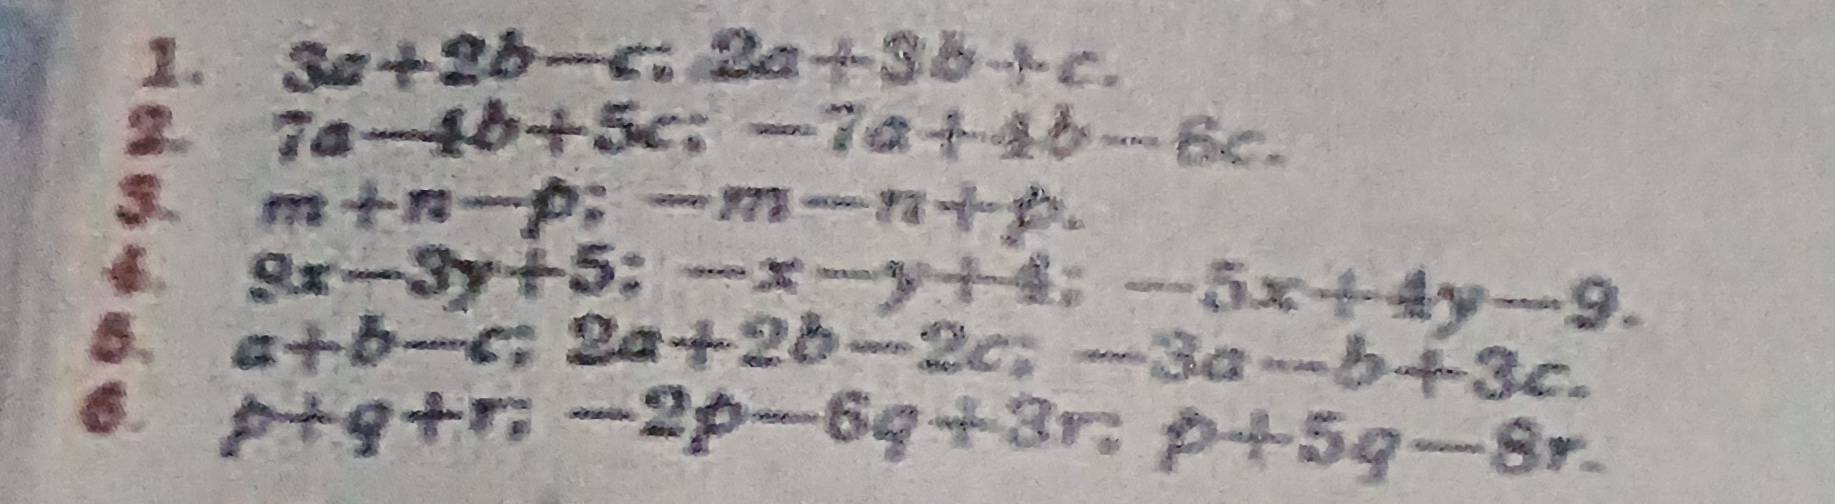 1. 3a+2b-c; 2a+3b+c.
2. 7a-4b+5c; -7a+4b-6c.
3. m+n-p; -m-n+p.
4. 9x-3y+5; -x-y+4; -5x+4y-9.
5. a+b-c; 2a+2b-2c; -3a-b+3c.
6. p+q+r; -2p-6q+3r; p+5q-8r.